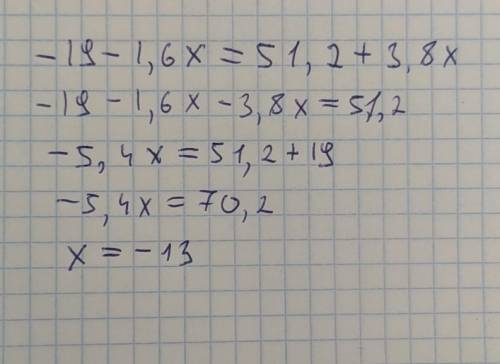 -19 - 1,6x = 51,2 + 3,8x
-19 - 1,6x - 3,8x = 51,2
-5,4x = 51,2 + 19
-5,4x = 70,2
x = -13